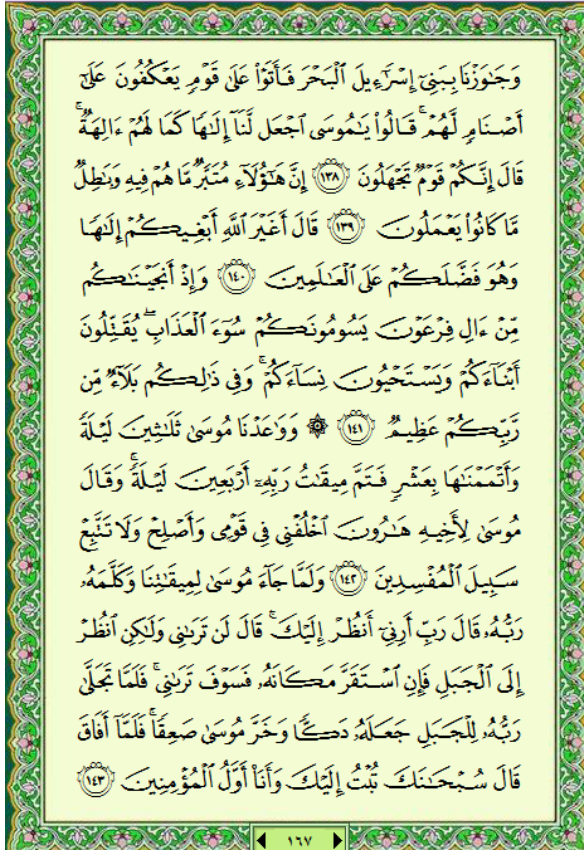 وَجَـٰوَزْنَا بِبَنِىٓ إِسْرَٰٓءِيلَ ٱلْبَحْرَ فَأَتَوْا۟ عَلَىٰ قَوْمٍ يَعْكُفُونَ عَلَىٰٓ
أَصْنَامٍ لَّهُمْ ۚ قَالُوا۟ يَـٰمُوسَى ٱجْعَل لَّنَآ إِلَـٰهًا كَمَا لَهُمْ ءَالِهَةٌ ۚ
قَالَ إِنَّكُمْ قَوْمٌ تَجْهَلُونَ ﴿١٣٨﴾ إِنَّ هَـٰٓؤُلَآءِ مُتَبَّرٌ مَّا هُمْ فِيهِ وَبَـٰطِلٌ
مَّا كَانُوا۟ يَعْمَلُونَ ﴿١٣٩﴾ قَالَ أَغَيْرَ ٱللَّهِ أَبْغِيكُمْ إِلَـٰهًا
وَهُوَ فَضَّلَكُمْ عَلَى ٱلْعَـٰلَمِينَ ﴿١٤٠﴾ وَإِذْ أَنجَيْنَـٰكُم
مِّنْ ءَالِ فِرْعَوْنَ يَسُومُونَكُمْ سُوٓءَ ٱلْعَذَابِ ۖ يُقَتِّلُونَ
أَبْنَآءَكُمْ وَيَسْتَحْيُونَ نِسَآءَكُمْ ۚ وَفِى ذَٰلِكُم بَلَآءٌ مِّن
رَّبِّكُمْ عَظِيمٌ ﴿١٤١﴾ ۞ وَوَٰعَدْنَا مُوسَىٰ ثَلَـٰثِينَ لَيْلَةً
وَأَتْمَمْنَـٰهَا بِعَشْرٍ فَتَمَّ مِيقَـٰتُ رَبِّهِۦٓ أَرْبَعِينَ لَيْلَةً ۚ وَقَالَ
مُوسَىٰ لِأَخِيهِ هَـٰرُونَ ٱخْلُفْنِى فِى قَوْمِى وَأَصْلِحْ وَلَا تَتَّبِعْ
سَبِيلَ ٱلْمُفْسِدِينَ ﴿١٤٢﴾ وَلَمَّا جَآءَ مُوسَىٰ لِمِيقَـٰتِنَا وَكَلَّمَهُۥ
رَبُّهُۥ قَالَ رَبِّ أَرِنِىٓ أَنظُرْ إِلَيْكَ ۚ قَالَ لَن تَرَىٰنِى وَلَـٰكِنِ ٱنظُرْ
إِلَى ٱلْجَبَلِ فَإِنِ ٱسْتَقَرَّ مَكَانَهُۥ فَسَوْفَ تَرَىٰنِى ۚ فَلَمَّا تَجَلَّىٰ
رَبُّهُۥ لِلْجَبَلِ جَعَلَهُۥ دَكًّا وَخَرَّ مُوسَىٰ صَعِقًا ۚ فَلَمَّآ أَفَاقَ
قَالَ سُبْحَـٰنَكَ تُبْتُ إِلَيْكَ وَأَنَا۠ أَوَّلُ ٱلْمُؤْمِنِينَ ﴿١٤٣﴾
١٦٧